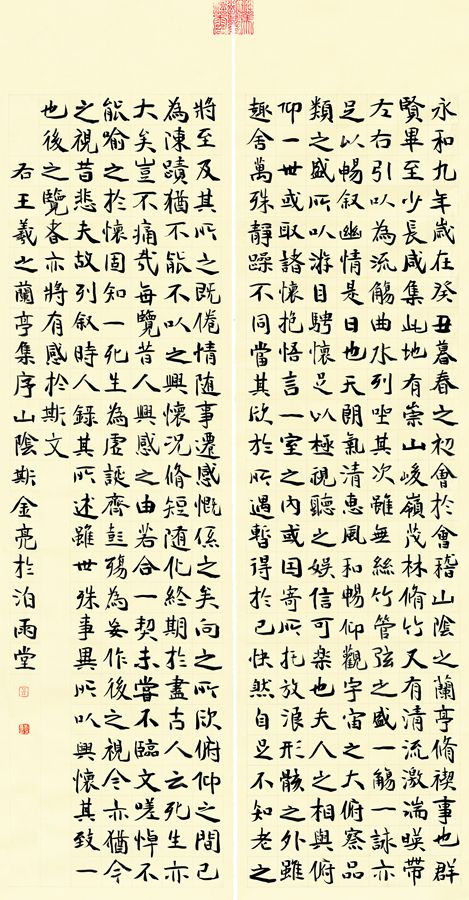 永和九年歲在癸丑暮春之初會於會稽山陰之蘭亭脩禊事也群
賢畢至少長咸集此地有崇山峻嶺茂林脩竹又有清流激湍暎帶
左右引以為流觴曲水列坐其次雖無絲竹管弦之盛一觴一詠亦
足以暢叙幽情是日也天朗氣清惠風和暢仰觀宇宙之大俯察品
類之盛所以游目騁懷足以極視聽之娛信可楽也夫人之相與俯
仰一世或取諸懷抱悟言一室之内或因寄所托放浪形骸之外雖
趣舍萬殊靜躁不同當其欣於所遇暫得於己快然自足不知老之
將至及其所之既倦情随事遷感慨係之矣向之所欣俯仰之間已
為陳蹟猶不能不以之興懷況脩短随化終期於盡古人云死生亦
大矣豈不痛哉每覽昔人興感之由若合一契未嘗不臨文嗟悼不
能喻之於懷固知一死生為虛誕齊彭殤為妄作後之視今亦猶今
之視昔悲夫故列叙時人錄其所述雖世殊事異所以興懷其致一
也後之覽者亦將有感於斯文
右王羲之蘭亭集序山陰斯金亮於泊雨堂